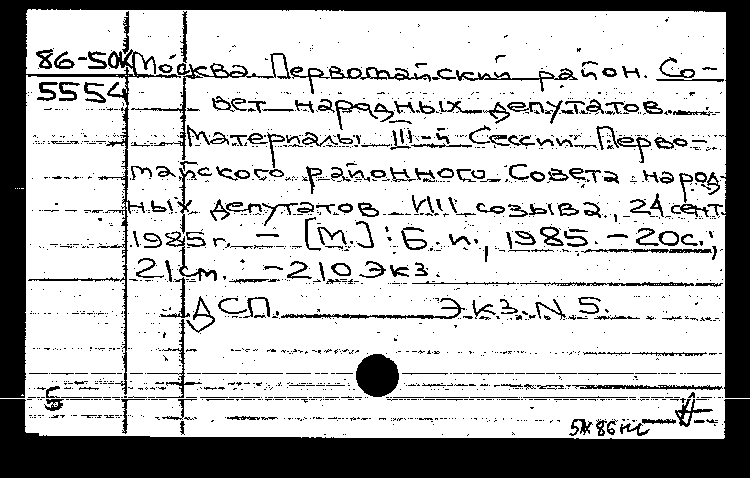 86-50к Москва. Первомайский район. Со-
5554 вет народных депутатов.
Материалы III-й Сессии Перво-
майского районного Совета народ-
ных депутатов XIX созыва, 24 сент.
1985 г. – [М.] : Б. и., 1985. – 20с.;
21 см. – 210 экз.
ДСП. Экз. N 5.
5